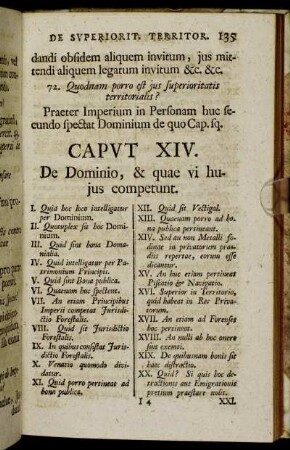 DE SVPERIORIT. TERRITOR. 135
dandi obsidem aliquem invitum, jus mit-
tendi aliquem legatum invitum &c. &c.
72. Quodnam porro est jus superioritatis
territorialis?
Praeter Imperium in Personam huc se-
cundo spectat Dominium de quo Cap. sq.
CAPVT XIV.
De Dominio, & quae vi hu-
jus competunt.
I. Quid hoc loco intelligatur
per Dominium.
II. Quotuplex sit hoc Domi-
nium.
III. Quid sint bona Doma-
nialia.
IV. Quid intelligatur per Pa-
trimonium Principis.
V. Quid sint Bona publica.
VI. Quorum huc spectent.
VII. An etiam Principibus
Imperii competat Jurisdi-
ctio Forestalis.
VIII. Quid sit Jurisdictio
Forestalis.
IX. In quibus consistat Juris-
dictio Forestalis.
X. Venatio quomodo divi-
datur.
XI. Quid porro pertineat ad
bona publica.
XII. Quid sit Vectigal.
XIII. Quorum porro ad bo-
na publica pertineant.
XIV. Sed an non Metalli fo-
dinae in privatorum prae-
diis repertae, eorum esse
dicantur.
XV. An huc etiam pertineat
Piscatio & Navigatio.
XVI. Superior in Territorio,
quid habeat in Res Priva-
torum.
XVII. An etiam ad Forenses
hoc pertineat.
XVIII. An nulli ab hoc onere
sint exemti.
XIX. De quibusnam bonis sit
haec distractio.
XX. Quid? Si quis hoc de-
tractionis aut Emigrationis
pretium praestare nolit.
I 4 XXI.